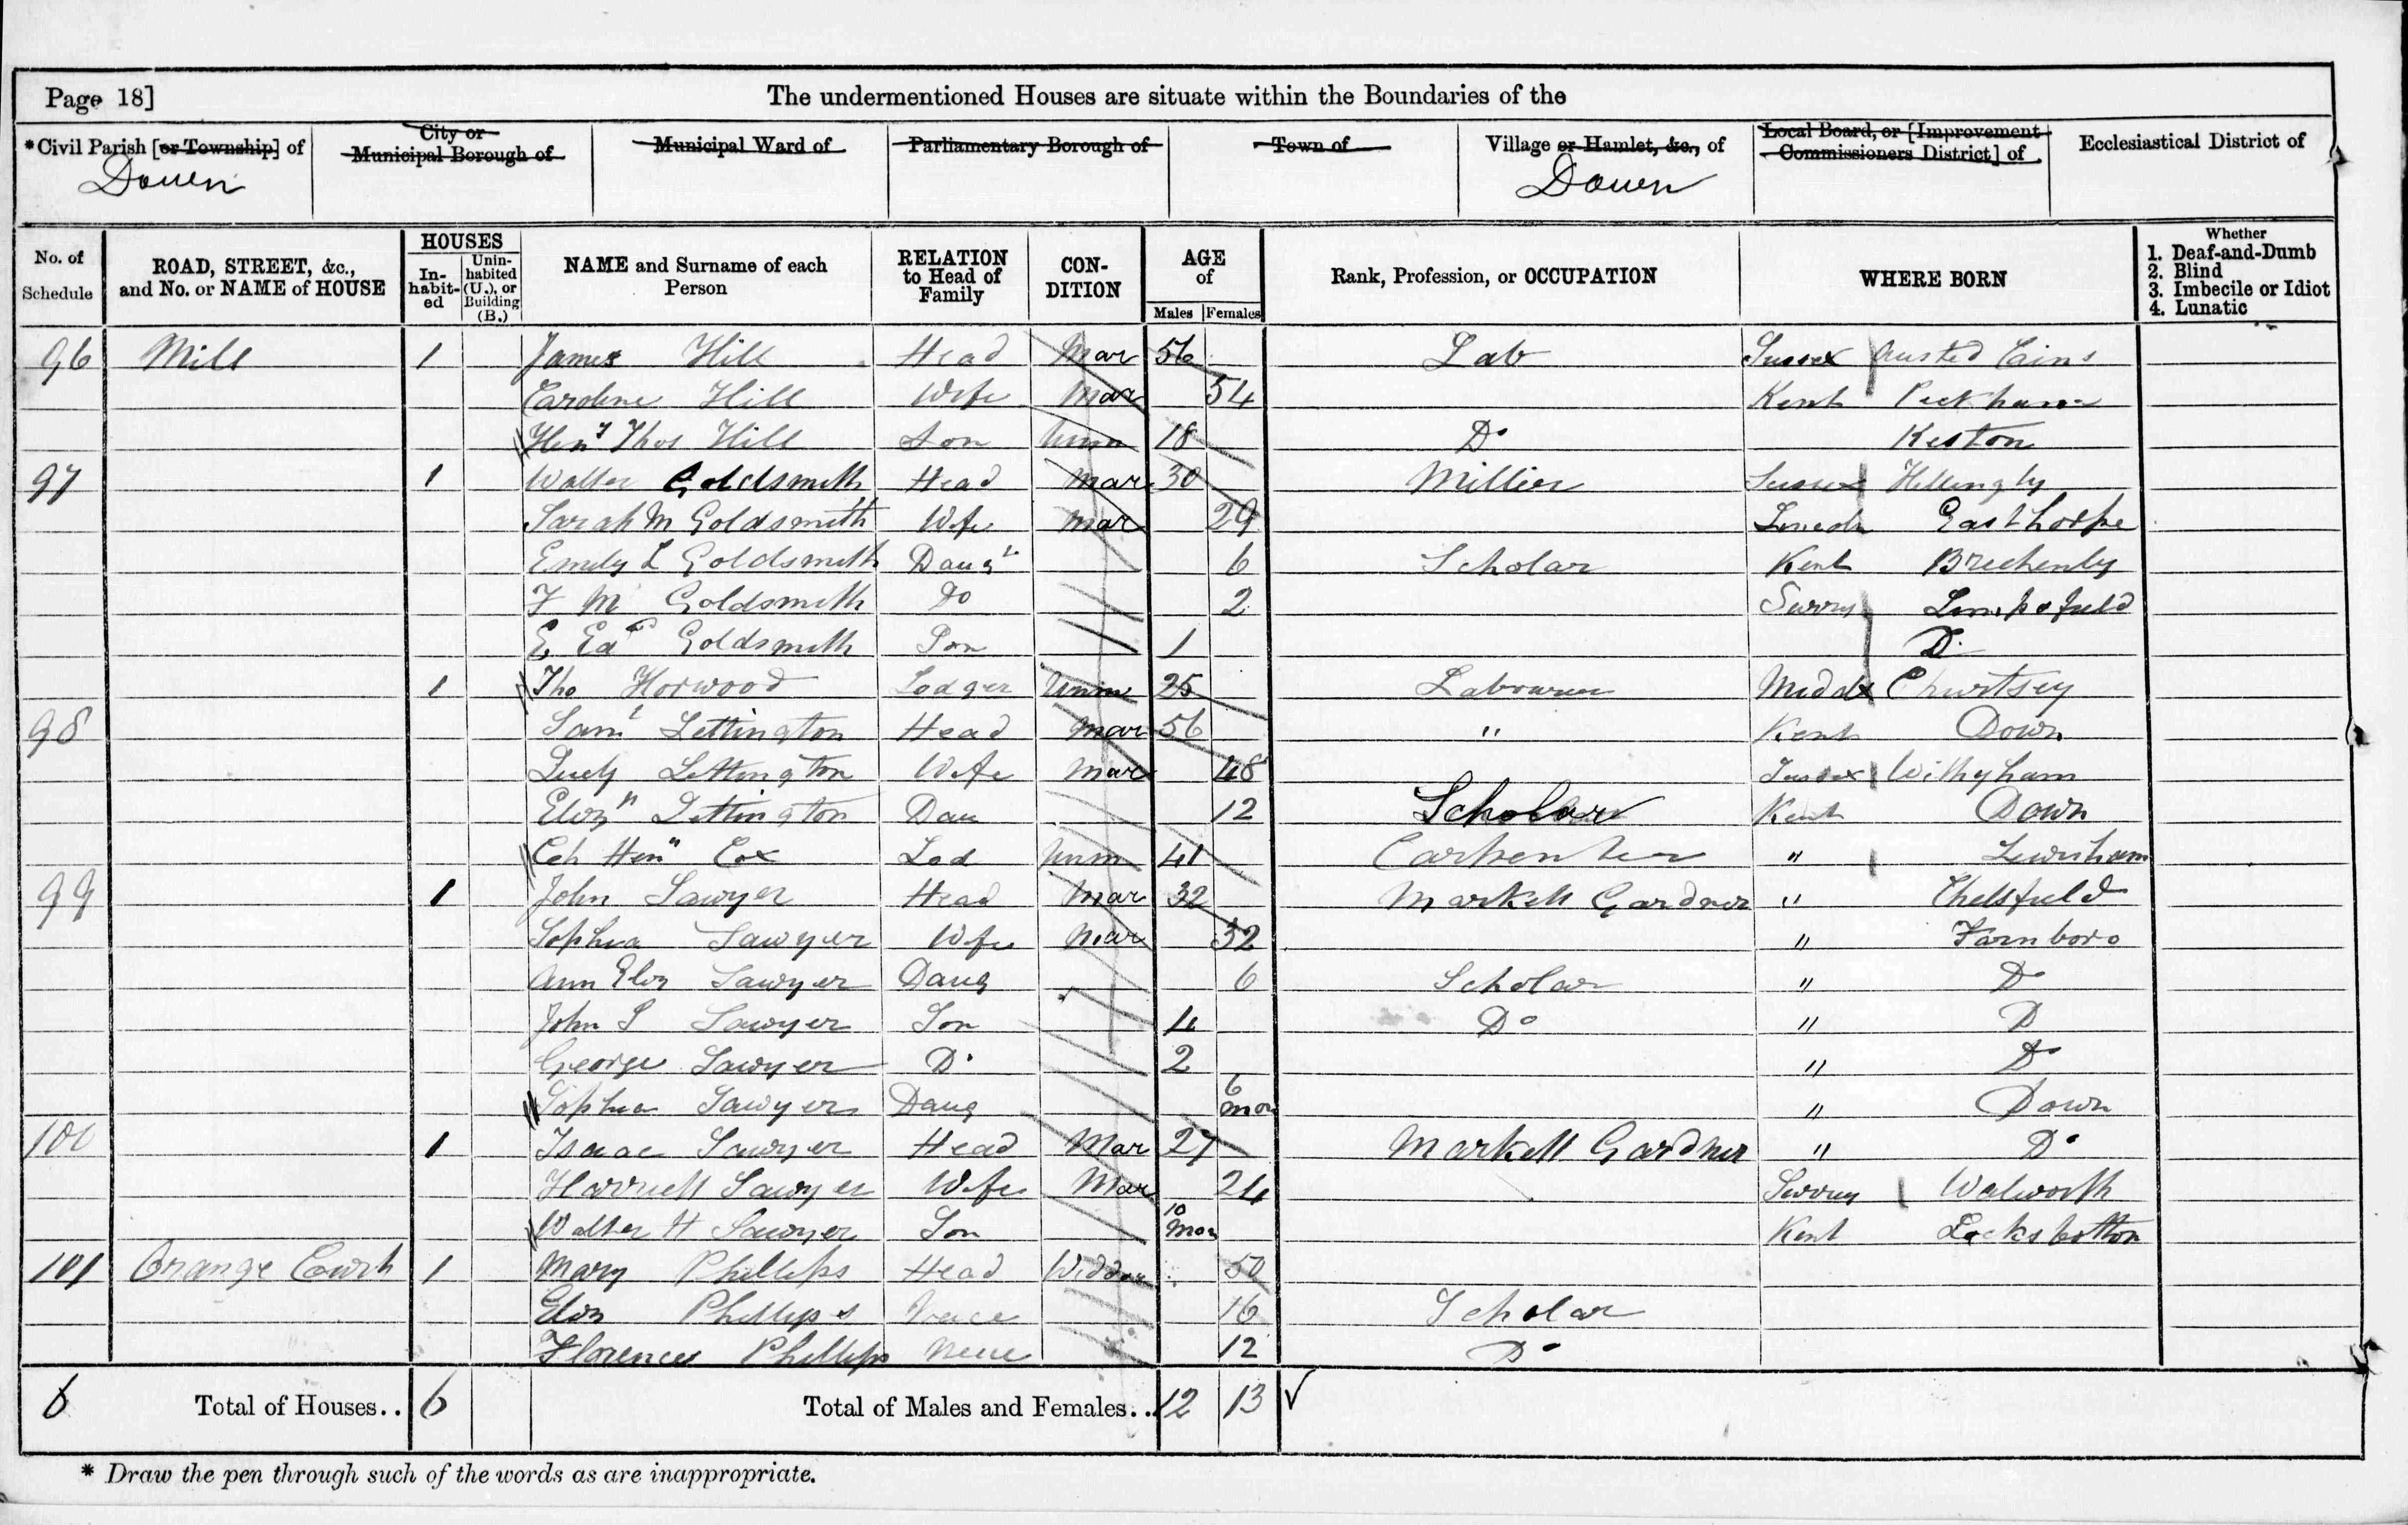 Page 18] The undermentioned Houses are situate within the Boundaries of the
*Civil Parish [or Township] of
City or Municipal Borough of
Municipal Ward of
Parliamentary Borough of
Town of
Village or Hamlet, &c., of
Local Board, or [Improvement Commissioners District] of
Ecclesiastical District of
Down Down
No. of Schedule
ROAD, STREET, &c., and No. or NAME of HOUSE
HOUSES
In-habit-ed
Unin-habited (U.), or Building (B.)
NAME and Surname of each Person
RELATION to Head of Family
CON-DITION
AGE of
Males Females
Rank, Profession, or OCCUPATION
WHERE BORN
Whether
1. Deaf-and-Dumb
2. Blind
3. Imbecile or Idiot
4. Lunatic
96 Mill 1 James Hill Head Mar 56 Lab Sussex
Caroline Hill Wife Mar 54 Kent Peckham
Heny Thos Hill Son Unm 18 Do Keston
97 1 Walter Goldsmith Head Mar 30 Millier Sussex Hellingly
Sarah M Goldsmith Wife Mar 29 Lincoln Easthorpe
Emily L Goldsmith Daugr 6 Scholar Kent
F M Goldsmith Do 2 Surry Limpsfield
E Ed Goldsmith Son 1 D
1 Tho Horwood Lodger Unm 25 Labourer Middx Churtsey
98 Saml Lettington Head Mar 56 " Kent Down
Lucy Lettington Wife Mar 48 Sussex Withyham
Elizn Lettington Dau 12 Scholar Kent Down
Ch Henn Cox Lod Unm 41 Carpenter " Lewisham
99 1 John Sawyer Head Mar 32 Markett Gardner " Chelsfield
Sophia Sawyer Wife Mar 32 " Farnboro
Ann Eliz Sawyer Daug 6 Scholar " Do
John S Sawyer Son 4 Do " D
George Sawyer D 2 " Do
Sophia Sawyer Daug 6 mon " Down
100 1 Isaac Sawyer Head Mar 27 Markett Gardner " Do
Harriett Sawyer Wife Mar 24 Surrey Walworth
Walter H Sawyer Son 10 Mon Kent Locksbottom
101 Orange Court 1 Mary Phillips Head 50
Eliz Phillips 16 Scholar
Florence Phillips Neice 12 Do
6 Total of Houses.. 6 Total of Males and Females.. 12 13
* Draw the pen through such of the words as are inappropriate.